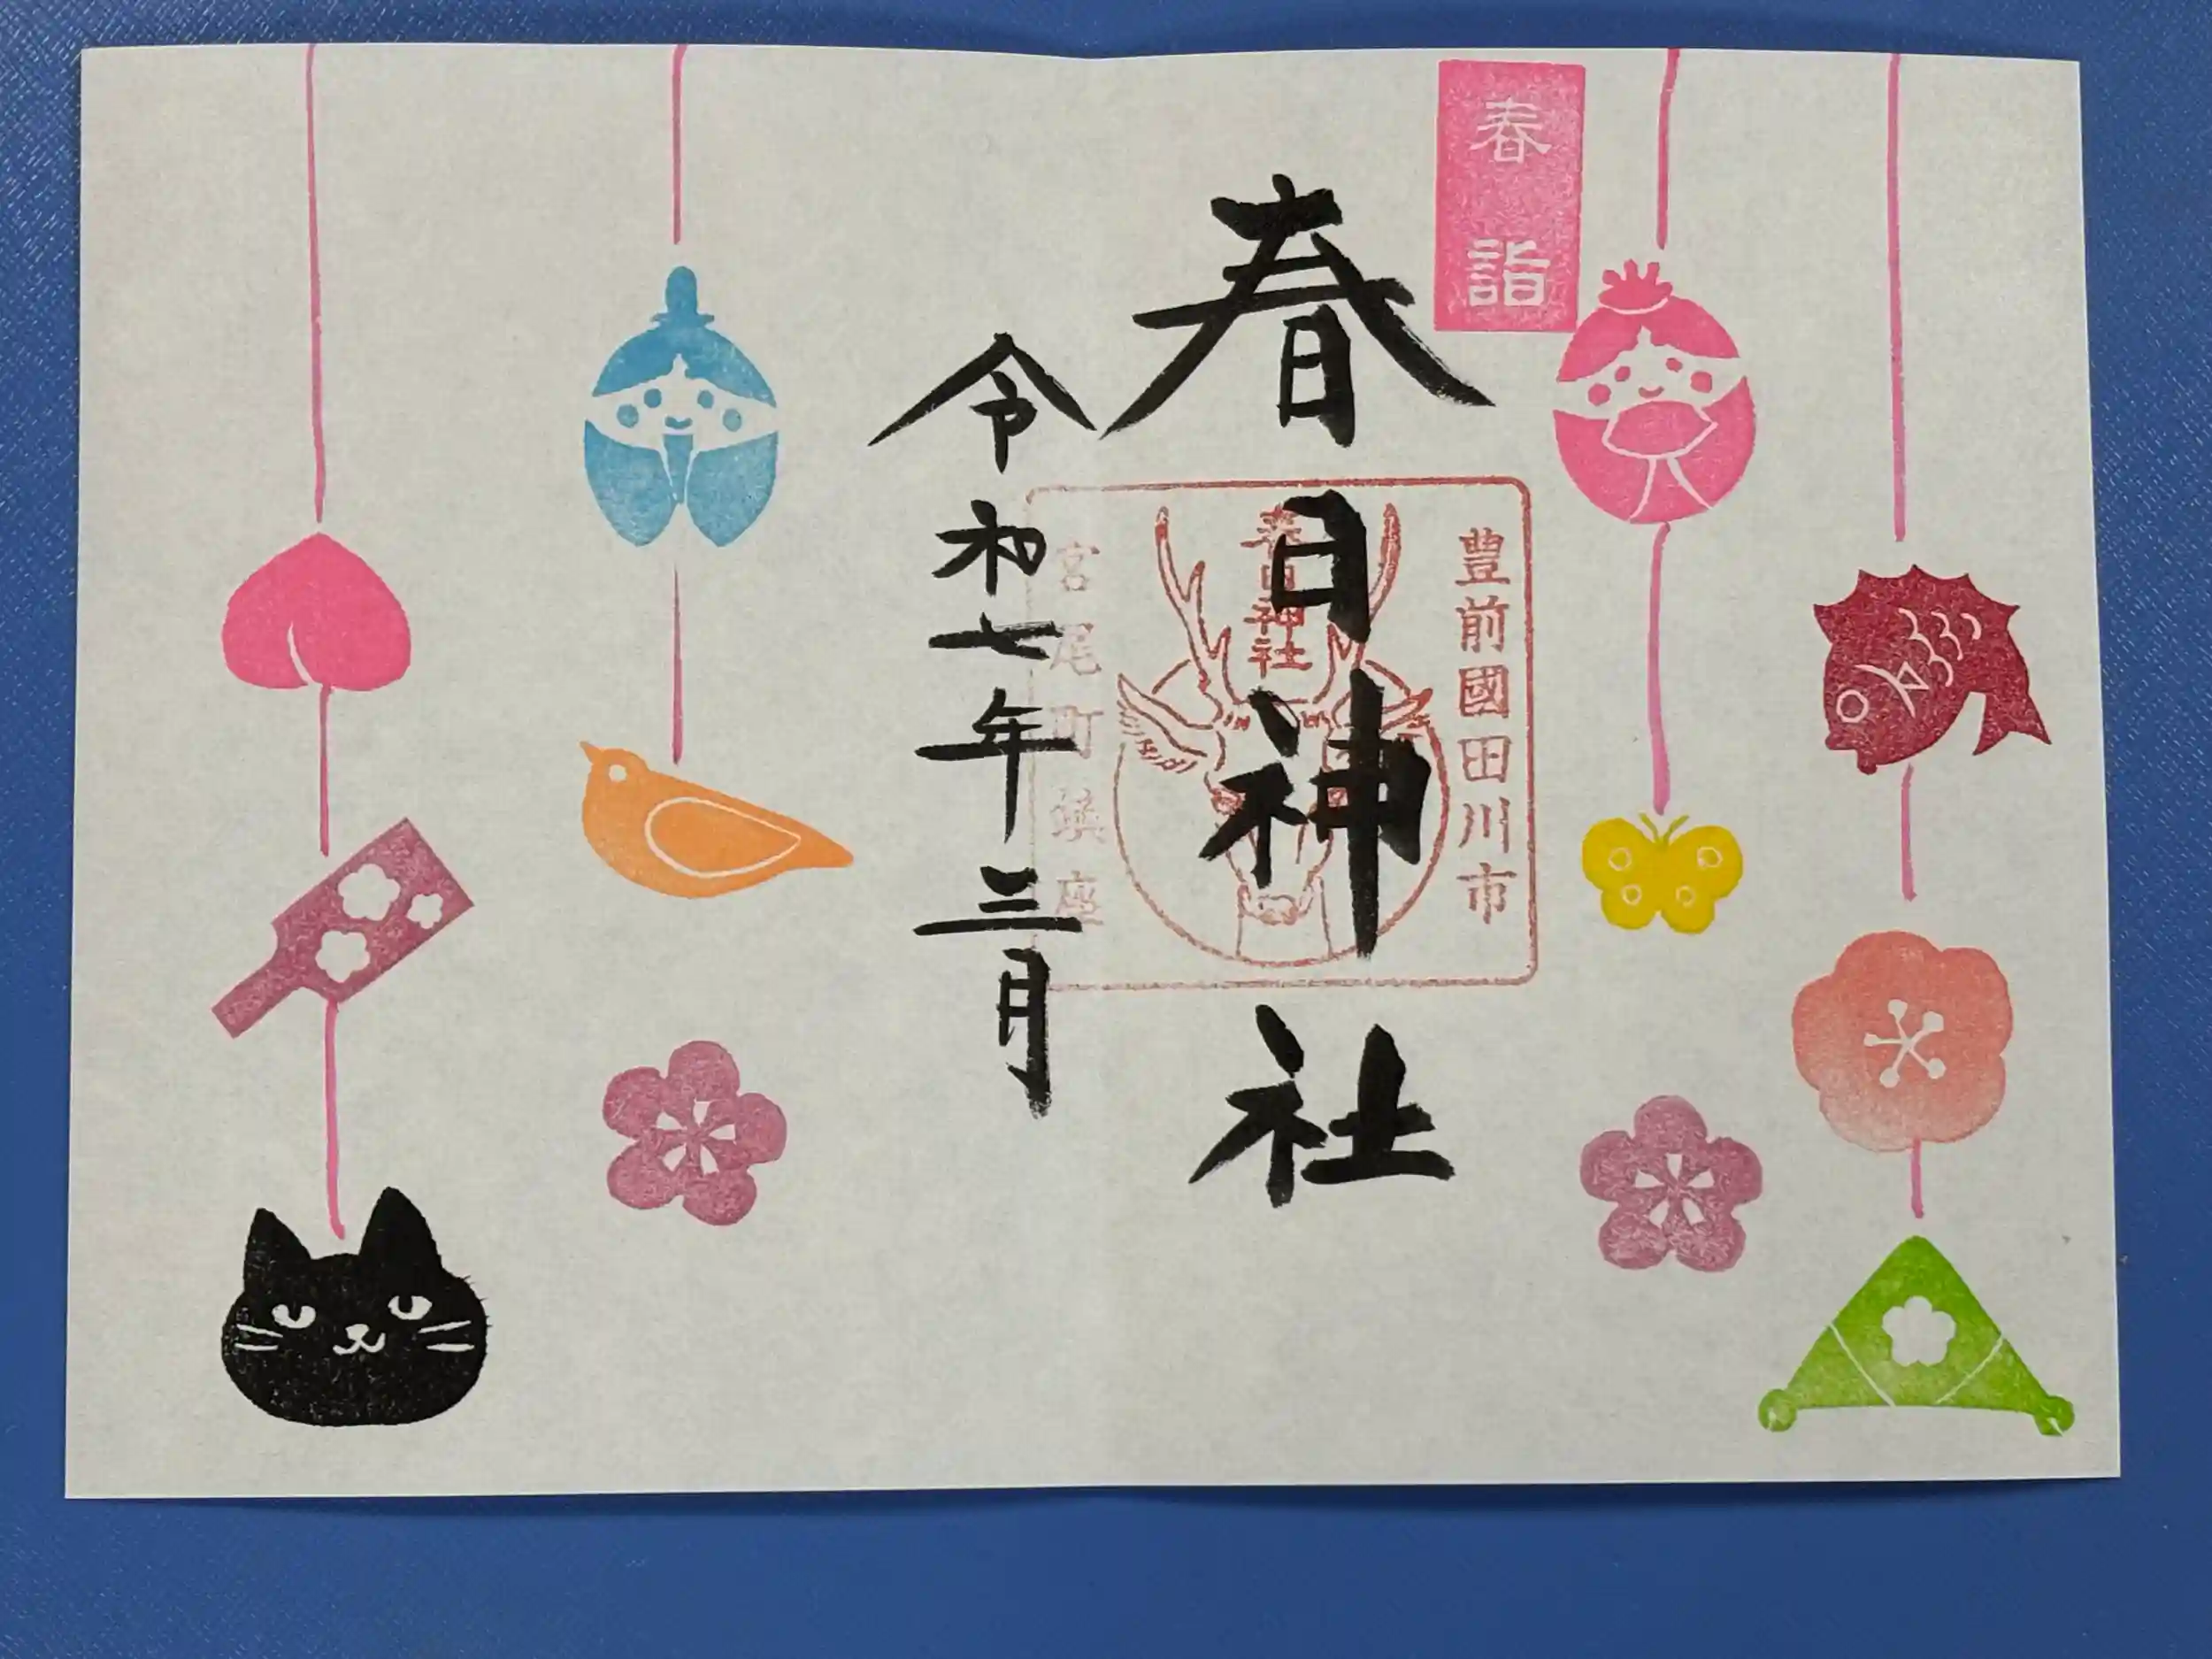 春詣
春日神社
令和七年三月
豊前國田川市
春日神社
宮尾町鎮座